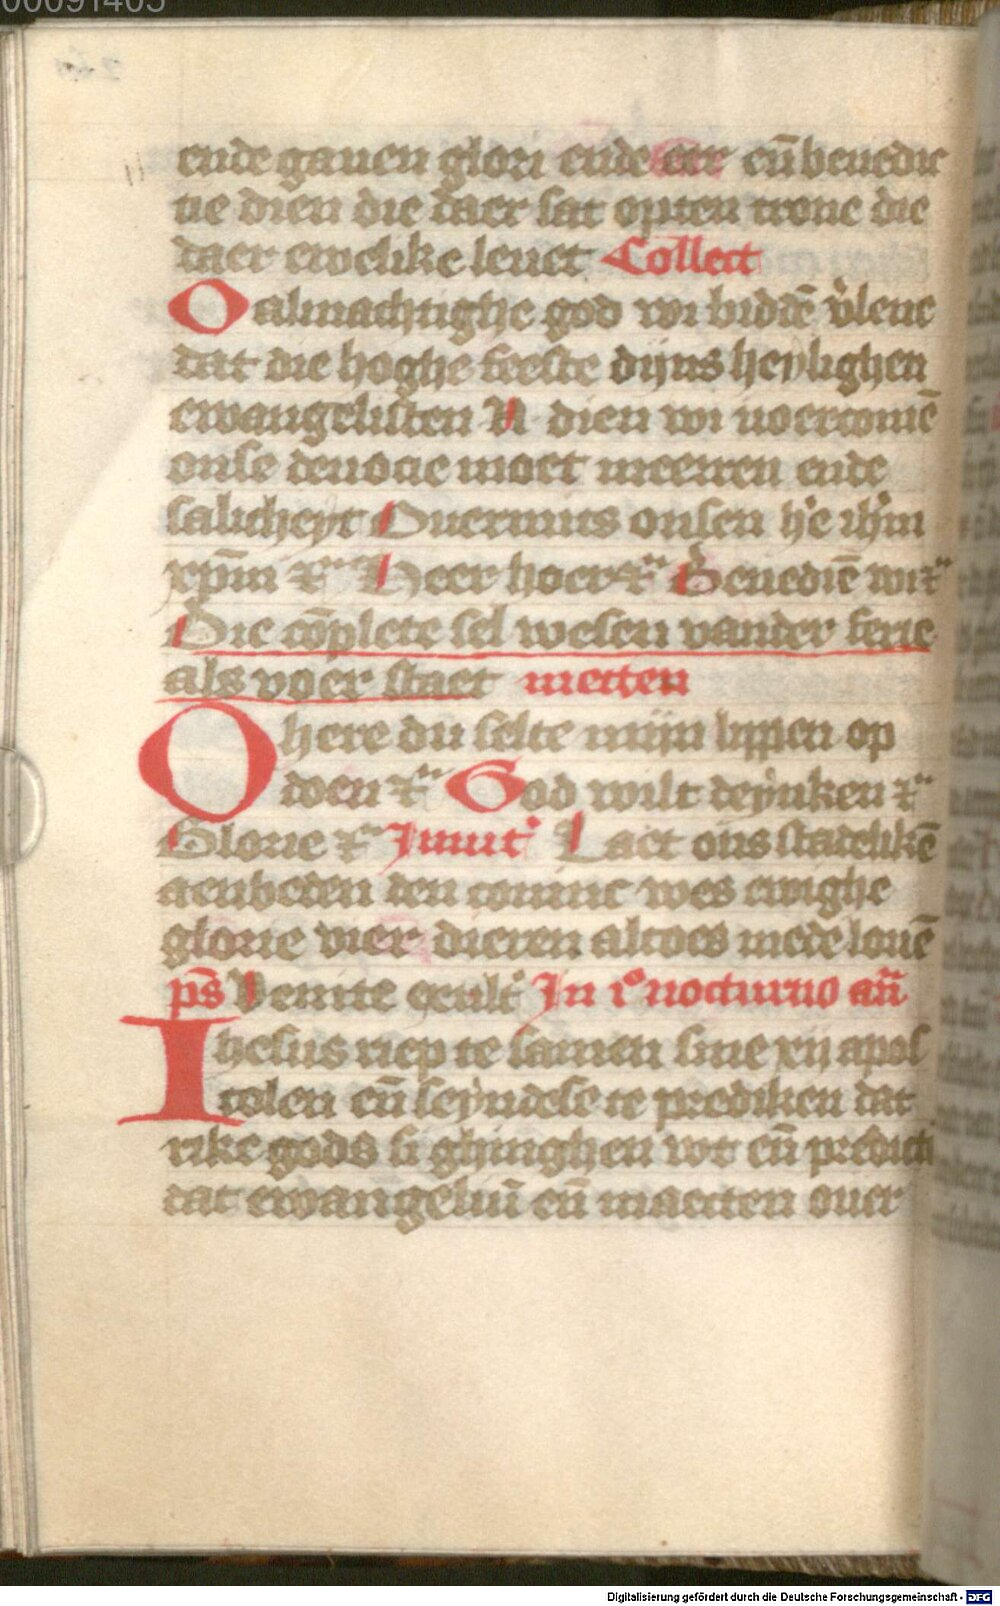 00091405
ende gauen glori ende eer eñ benedic
tie dien die daer sat opten trone die
daer ewelike leuet Collect
O almachtighe god wi biddē v̉lene
dat die hoghe feeste dijns heylighen
ewangelisten N dien wi voercomē
onse deuocie moet meerren ende
salicheyt Ouermits onsen h̉e ih̄m
xp̄m ⁊c̄ Heer hoer ⁊c̄ Benediē wi ⁊c̄
Die cōplete sel wesen vander ferie
als voer staet metten
O here du selte mijn lippen op
doen ⁊c̄ God wilt deynken ⁊c̄
Glorie ⁊c̄ Inuit̉ Laet ons stadelikē
aenbeden den coninc wes ewighe
glorie vier dieren altoes mede louē
ps̄ Venite exult̉ In 1º nocturno añ
Ihesus riep te samen sine xij apos
tolen eñ seyndese te prediken dat
rike gods si ghinghen wt eñ predicti
dat ewangeliū eñ maecten ouer
Digitalisierung gefördert durch die Deutsche Forschungsgemeinschaft - DFG